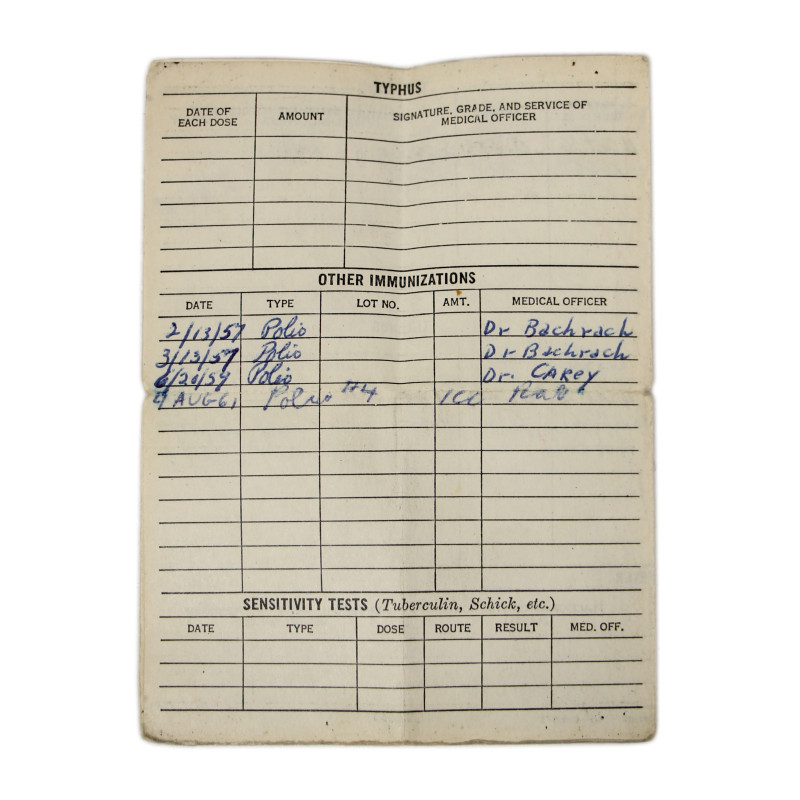 TYPHUS
DATE OF EACH DOSE AMOUNT SIGNATURE, GRADE, AND SERVICE OF MEDICAL OFFICER
OTHER IMMUNIZATIONS
DATE TYPE LOT NO. AMT. MEDICAL OFFICER
2/13/57 Polio Dr Bachrach
3/13/57 Polio Dr Bachrach
6/20/59 Polio Dr. CAREY
AUG 61 Polio #4 1cc
SENSITIVITY TESTS (Tuberculin, Schick, etc.)
DATE TYPE DOSE ROUTE RESULT MED. OFF.